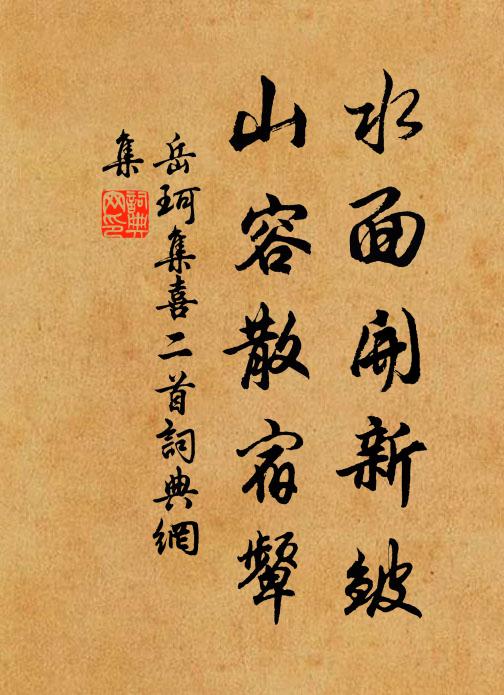 水面開新皺
山容散宿顰
岳珂集喜二首詞典網
集
詞典
网印